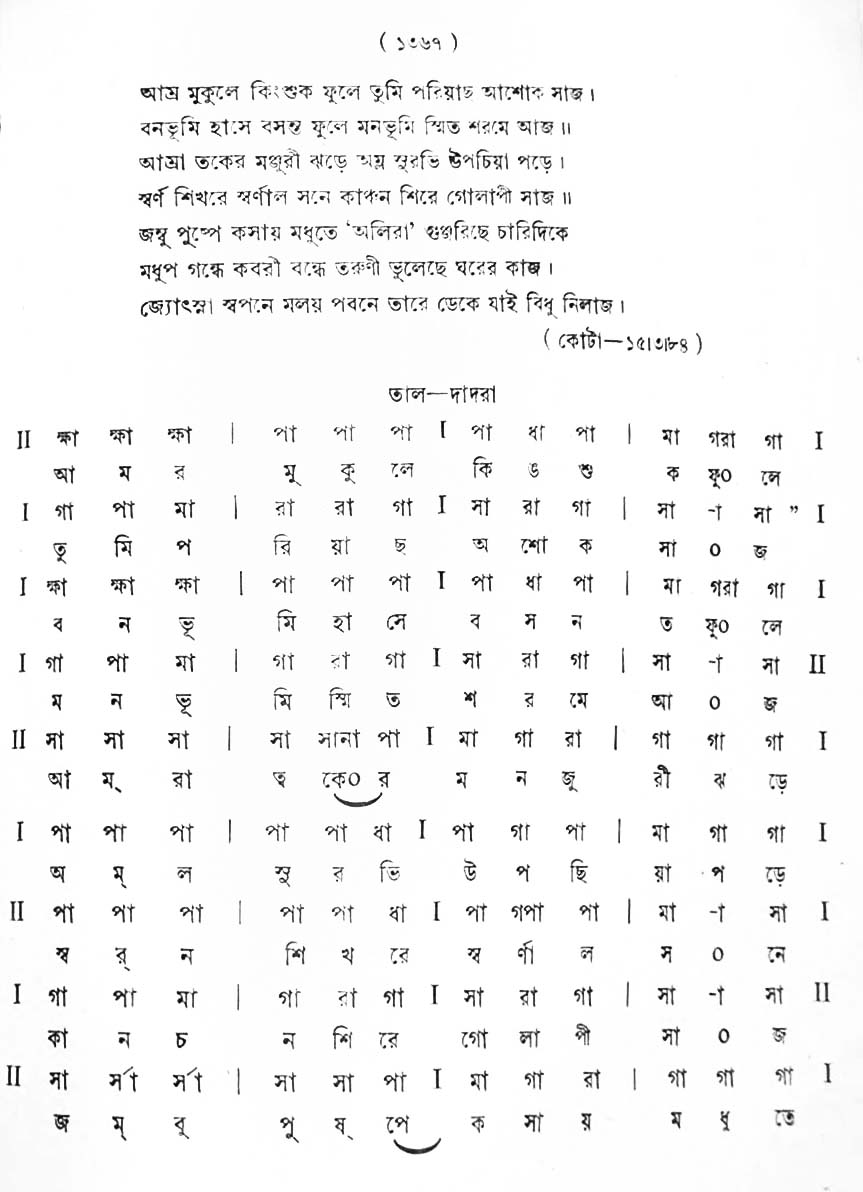 ( ১৩৬৭ )
আম্র মুকুলে কিংশুক ফুলে তুমি পরিয়াছ আশোক সাজ।
বনভূমি হাসে বসন্ত ফুলে মনভূমি স্মিত শরমে আজ॥
আম্রা তকের মঞ্জুরী ঝড়ে অম্ল সুরভি উপচিয়া পড়ে।
স্বর্ণ শিখরে স্বর্ণাল সনে কাঞ্চন শিরে গোলাপী সাজ॥
জম্বু পুষ্পে কসায় মধুতে ‘অলিরা’ গুঞ্জরিছে চারিদিকে
মধুপ গন্ধে কবরী বন্ধে তরুণী ভুলেছে ঘরের কাজ।
জ্যোৎস্না স্বপনে মলয় পবনে তারে ডেকে যাই বিধু নিলাজ।
( কোটা—১৫।৩।৮৪ )
তাল—দাদরা
II ক্ষা ক্ষা ক্ষা | পা পা পা I পা ধা পা | মা গরা গা I
আ ম র মু কু লে কি ঙ শু ক ফু০ লে
I গা পা মা | রা রা গা I সা রা গা | সা -া সা ” I
তু মি প রি য়া ছ অ শো ক সা ০ জ
I ক্ষা ক্ষা ক্ষা | পা পা পা I পা ধা পা | মা গরা গা I
ব ন ভূ মি হা সে ব স ন ত ফু০ লে
I গা পা মা | গা রা গা I সা রা গা | সা -া সা II
ম ন ভূ মি স্মি ত শ র মে আ ০ জ
II সা সা সা | সা সানা পা I মা গা রা | গা গা গা I
আ ম্ রা ত্ব কে০ র ম ন জু রী ঝ ড়ে
I পা পা পা | পা পা ধা I পা গা পা | মা গা গা I
অ ম্ ল সু র ভি উ প ছি য়া প ড়ে
II পা পা পা | পা পা ধা I পা গপা পা | মা -া সা I
স্ব র্ ন শি খ রে স্ব র্ণা ল স ০ নে
I গা পা মা | গা রা গা I সা রা গা | সা -া সা II
কা ন চ ন শি রে গো লা পী সা ০ জ
II সা র্সা র্সা | সা সা পা I মা গা রা | গা গা গা I
জ ম্ বু পু ষ্ পে ক সা য় ম ধু তে